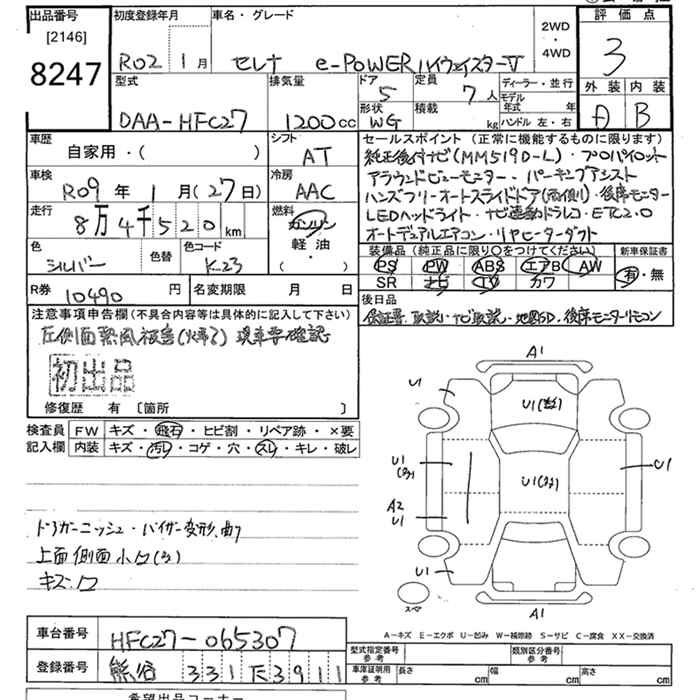 出品番号 初度登録年月 車名・グレード 2WD・4WD 評価点
[2146]
8247
R02 1月 セレナ e-POWER ハイウェイスターV 3
型式 排気量 ドア 5 定員 7人 ディーラー・並行 外装 内装
DAA-HFC27 1200cc 形状 WG 積載 kg モデル年式 年 ハンドル 左・右 A B
車歴 自家用・( ) シフト AT
セールスポイント(正常に機能するものに限ります)
純正後付ナビ(MM519D-L)・プロパイロット
アラウンドビューモニター・パーキングアシスト
ハンズフリーオートスライドドア(両側)・後席モニター
LEDヘッドライト・ナビ連動ドラレコ・ETC2.0
オートデュアルエアコン・リヤヒーターダクト
車検 R09年 1月(27日) 冷房 AAC
走行 8万4千520km 燃料 ガソリン 軽油・( )
色 シルバー 色替 色コード K23
装備品(純正品に限り○をつけてください) 新車保証書
PS PW ABS エアB AW 有・無
SR ナビ TV カワ
R券 10490円 名変期限 月 日
後日品
保証書・取説・ナビ取説・地図SD・後席モニターリモコン
注意事項申告欄(不具合内容等は具体的に記入して下さい)
現車要確認
初出品
修復歴 有〔箇所 〕
検査員記入欄 FW キズ・飛石・ヒビ割・リペア跡・×要
内装 キズ・汚レ・コゲ・穴・スレ・キレ・破レ
ドラガーニッシュ・バイザー変形、曲り
上面側面小凹(多)
キズ・凹
A1
U1
U1(多)
U1
U1(多)
U1(多)
A2
U1
U1
スペア
A1
A-キズ E-エクボ U-凹み W-補修跡 S-サビ C-腐食 XX-交換済
車台番号 HFC27-065307
登録番号 熊谷 331 た 3911
型式指定番号 参考 類別区分番号 参考
車庫証明用 参考 長さ cm 幅 cm 高さ cm
希望出品コーナー